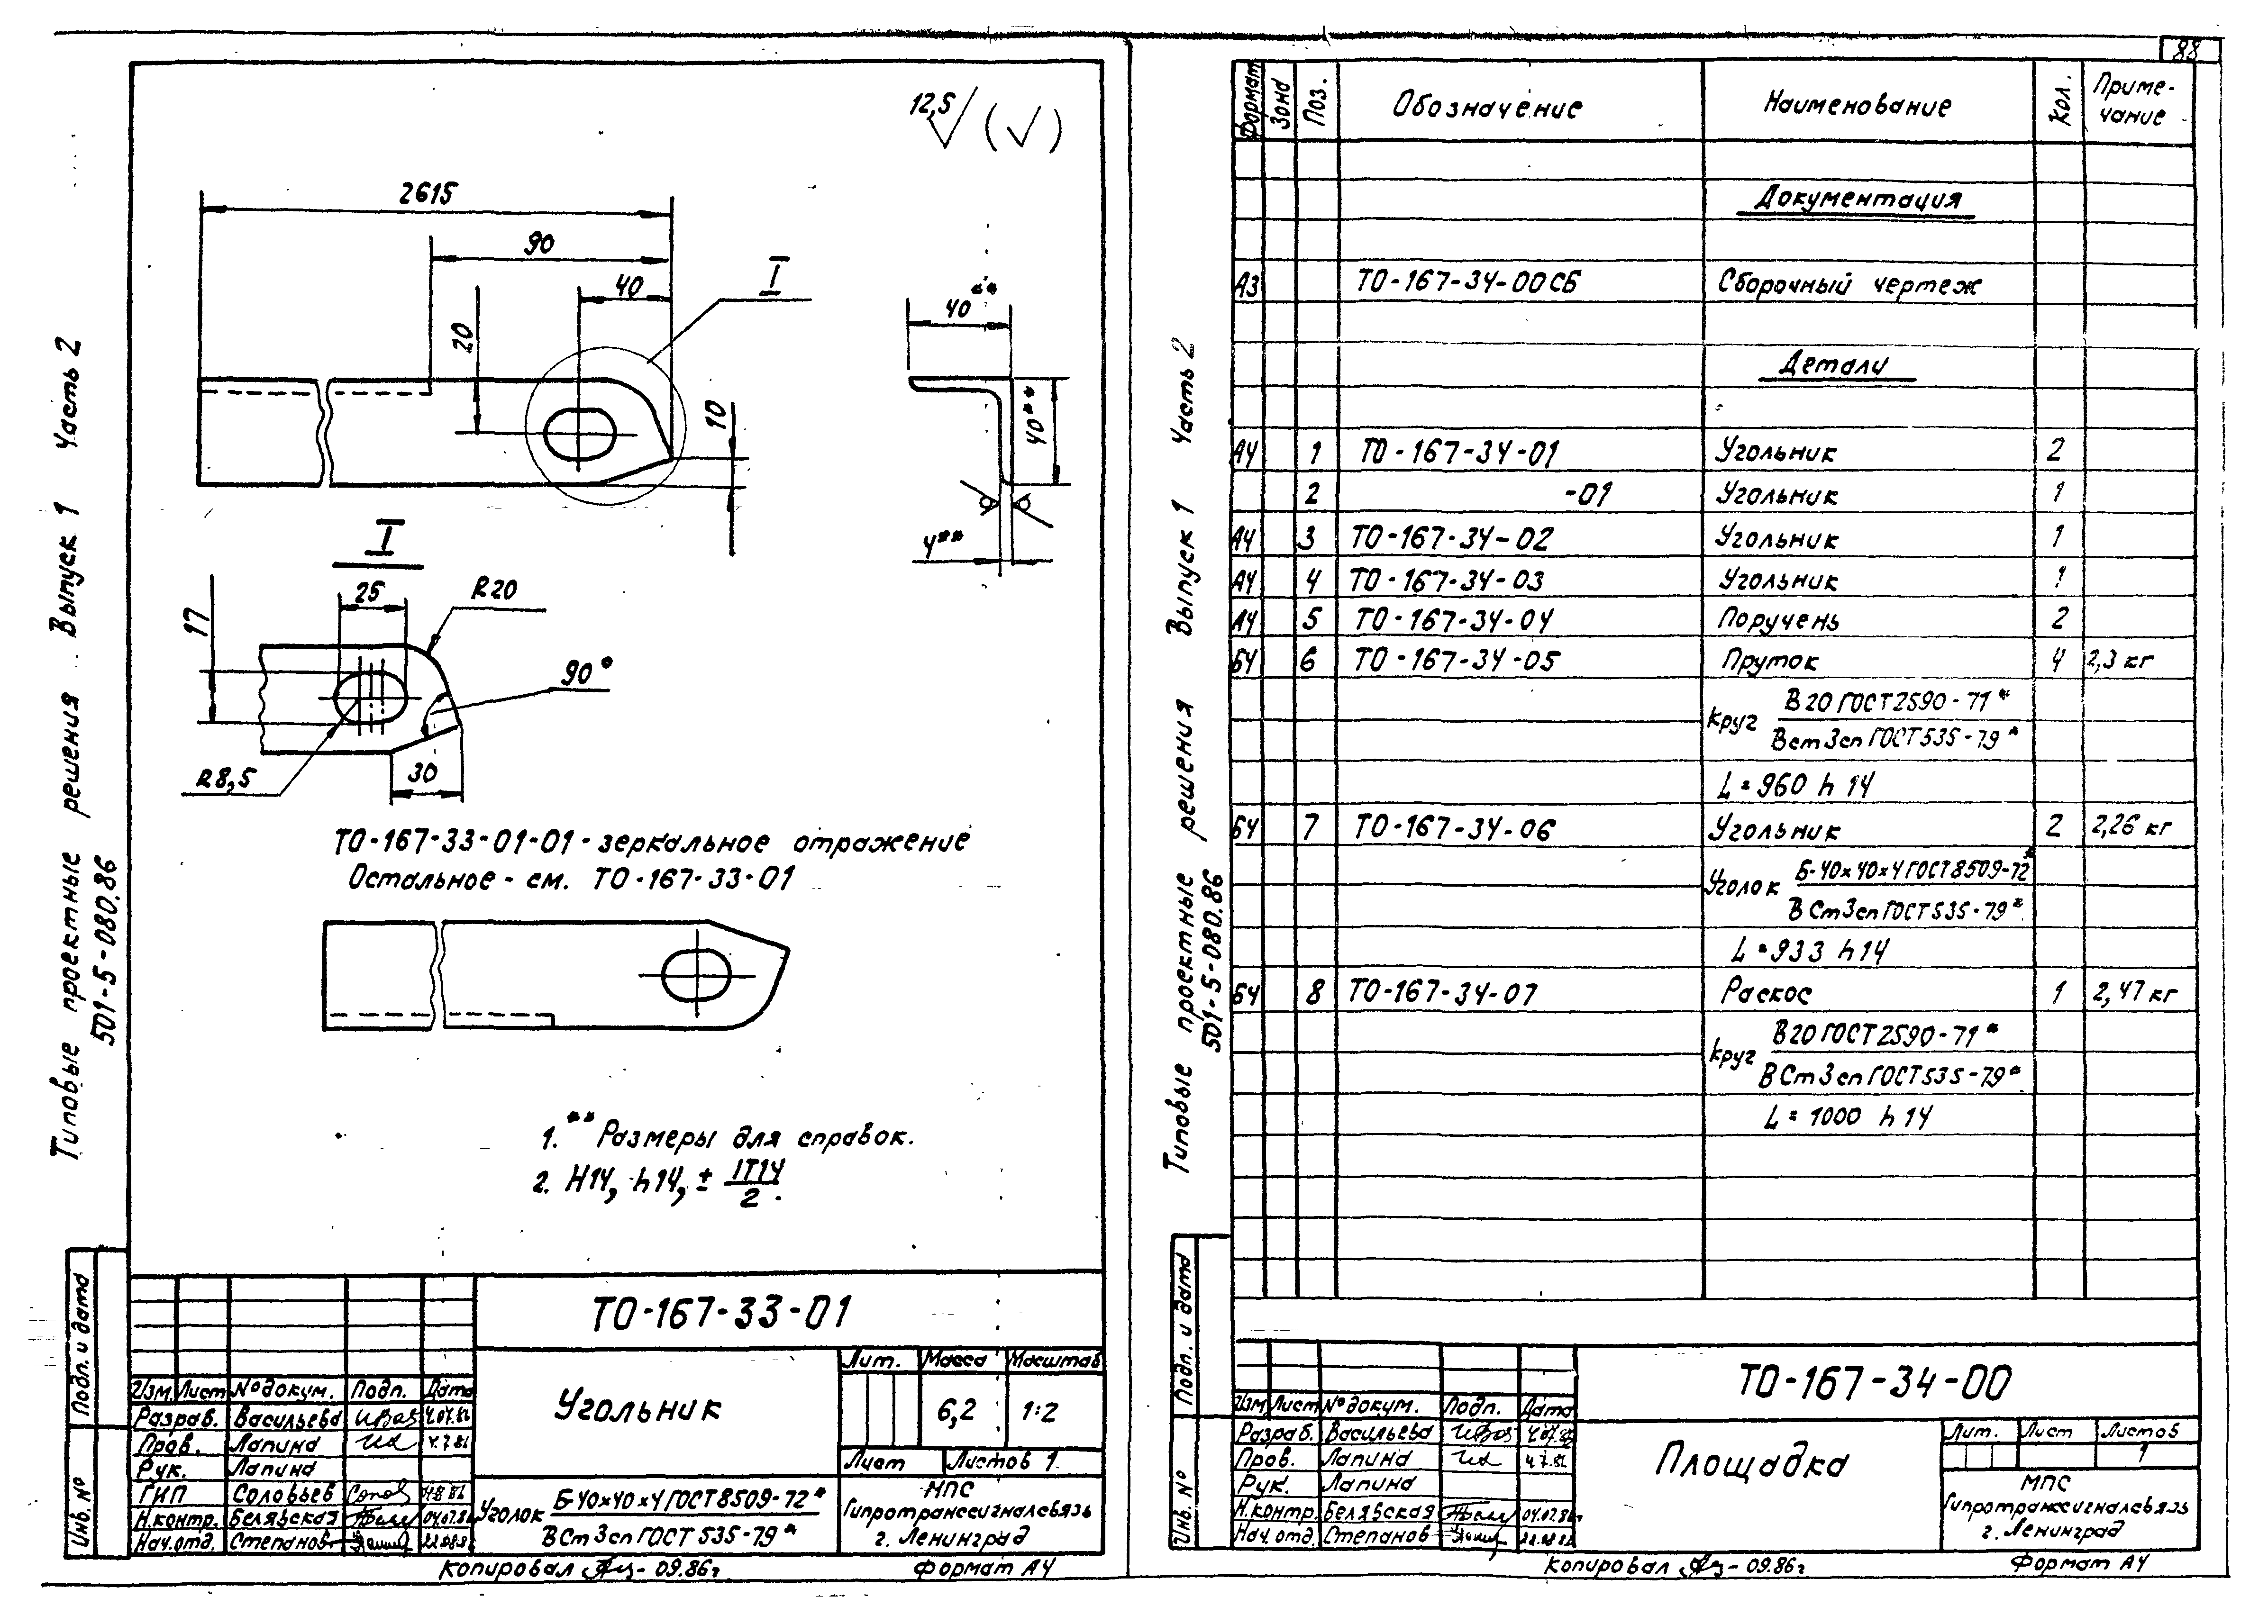 88
Типовые проектные решения Выпуск 1 Часть 2
501-5-080.86
12,5 (√)
2615
90
40
I
20
10
40**
40**
4**
I
25
R20
17
90°
R8,5
30
ТО-167-33-01-01 - зеркальное отражение
Остальное - см. ТО-167-33-01
1. ** Размеры для справок.
2. H14, h14, ± IT14/2.
Подп. и дата
Инв. №
ТО-167-33-01
Изм. Лист № докум. Подп. Дата
Разраб. Васильева 4.07.86
Пров. Лапина 4.7.86
Рук. Лапина
ГИП Соловьев
Н.контр. Белявская 04.07.86
Нач.отд. Степанов
Угольник
Лит. Масса Масштаб
6,2 1:2
Лист Листов 1
Уголок Б-40×40×4 ГОСТ 8509-72*
ВСт3сп ГОСТ 535-79*
МПС
Гипротранссигналсвязь
г. Ленинград
Копировал 09.86г
Формат А4
Типовые проектные решения Выпуск 1 Часть 2
501-5-080.86
Формат Зона Поз. Обозначение Наименование Кол. Приме-
чание
Документация
А3 ТО-167-34-00СБ Сборочный чертеж
Детали
А4 1 ТО-167-34-01 Угольник 2
2 -01 Угольник 1
А4 3 ТО-167-34-02 Угольник 1
А4 4 ТО-167-34-03 Угольник 1
А4 5 ТО-167-34-04 Поручень 2
БЧ 6 ТО-167-34-05 Пруток 4 2,3 кг
Круг В20 ГОСТ 2590-71*
Вст3сп ГОСТ 535-79*
L=960 h14
БЧ 7 ТО-167-34-06 Угольник 2 2,26 кг
Уголок Б-40×40×4 ГОСТ 8509-72*
ВСт3сп ГОСТ 535-79*
L=933 h14
БЧ 8 ТО-167-34-07 Раскос 1 2,47 кг
Круг В20 ГОСТ 2590-71*
ВСт3сп ГОСТ 535-79*
L=1000 h14
Подп. и дата
Инв. №
ТО-167-34-00
Изм. Лист № докум. Подп. Дата
Разраб. Васильева
Пров. Лапина 4.7.86
Рук. Лапина
Н.контр. Белявская 04.07.86
Нач.отд. Степанов
Площадка
Лит. Лист Листов
1
МПС
Гипротранссигналсвязь
г. Ленинград
Копировал 09.86г
Формат А4